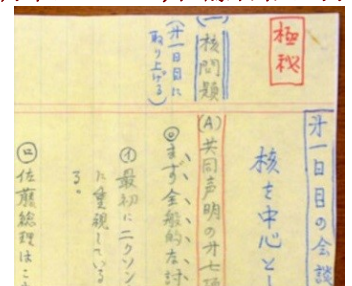 極秘
第一日目の会談
核を中心とし
(一)核問題
(第一日目に
取り上げる)
(A)共同声明の第七項
◎まず全般的な討
㋑最初にニクソン
た重視している
る。
㋺佐藤総理はこ